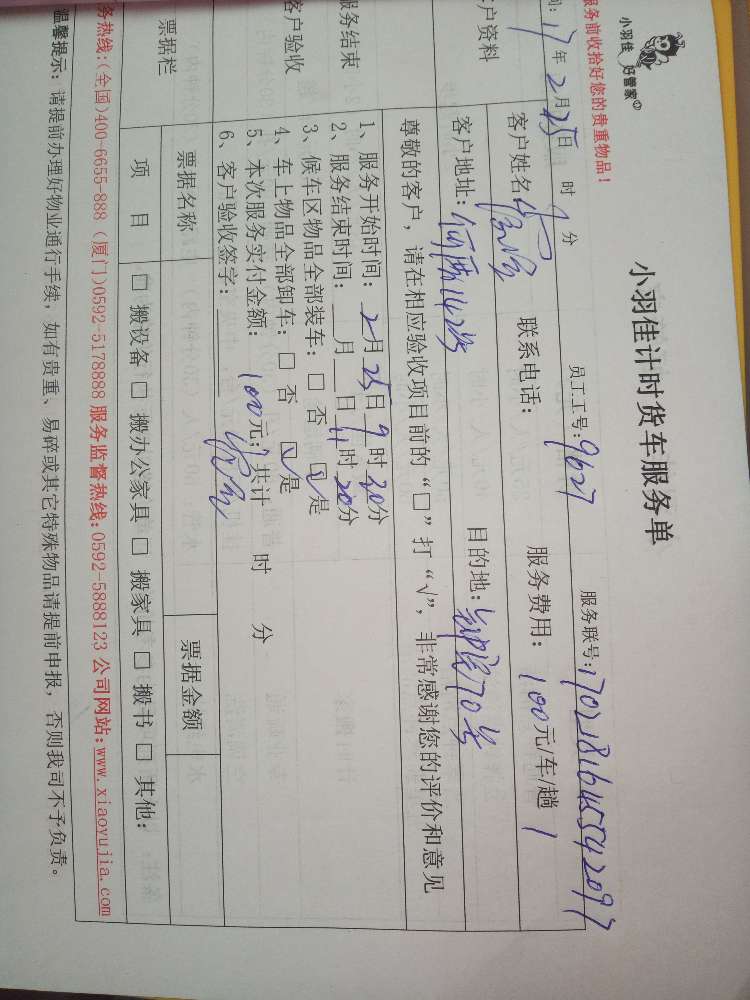 小羽佳 好管家
服务前收拾好您的贵重物品！
小羽佳计时货车服务单
间: 17年2月25日 时 分 员工工号: 9627 服务联号:
户资料
客户姓名 联系电话: 服务费用: 100元/车/趟 1
客户地址: 何厝142号 目的地: 70号
尊敬的客户，请在相应验收项目前的“□”打“√”，非常感谢您的评价和意见
服务结束
客户验收
1、服务开始时间: 2月25日9时20分
2、服务结束时间: 月 日11时20分
3、候车区物品全部装车: □ 否 ☑是
4、车上物品全部卸车: □ 否 ☑是
5、本次服务实付金额: 100元; 共计 时 分
6、客户验收签字:
票据栏
票据名称 票据金额
项 目 □ 搬设备 □ 搬办公家具 □ 搬家具 □ 搬书 □ 其他:
务热线:(全国)400-6655-888 (厦门)0592-5178888 服务监督热线:0592-5888123 公司网站:www.xiaoyujia.com
温馨提示: 请提前办理好物业通行手续，如有贵重、易碎或其它特殊物品请提前申报，否则我司不予负责。